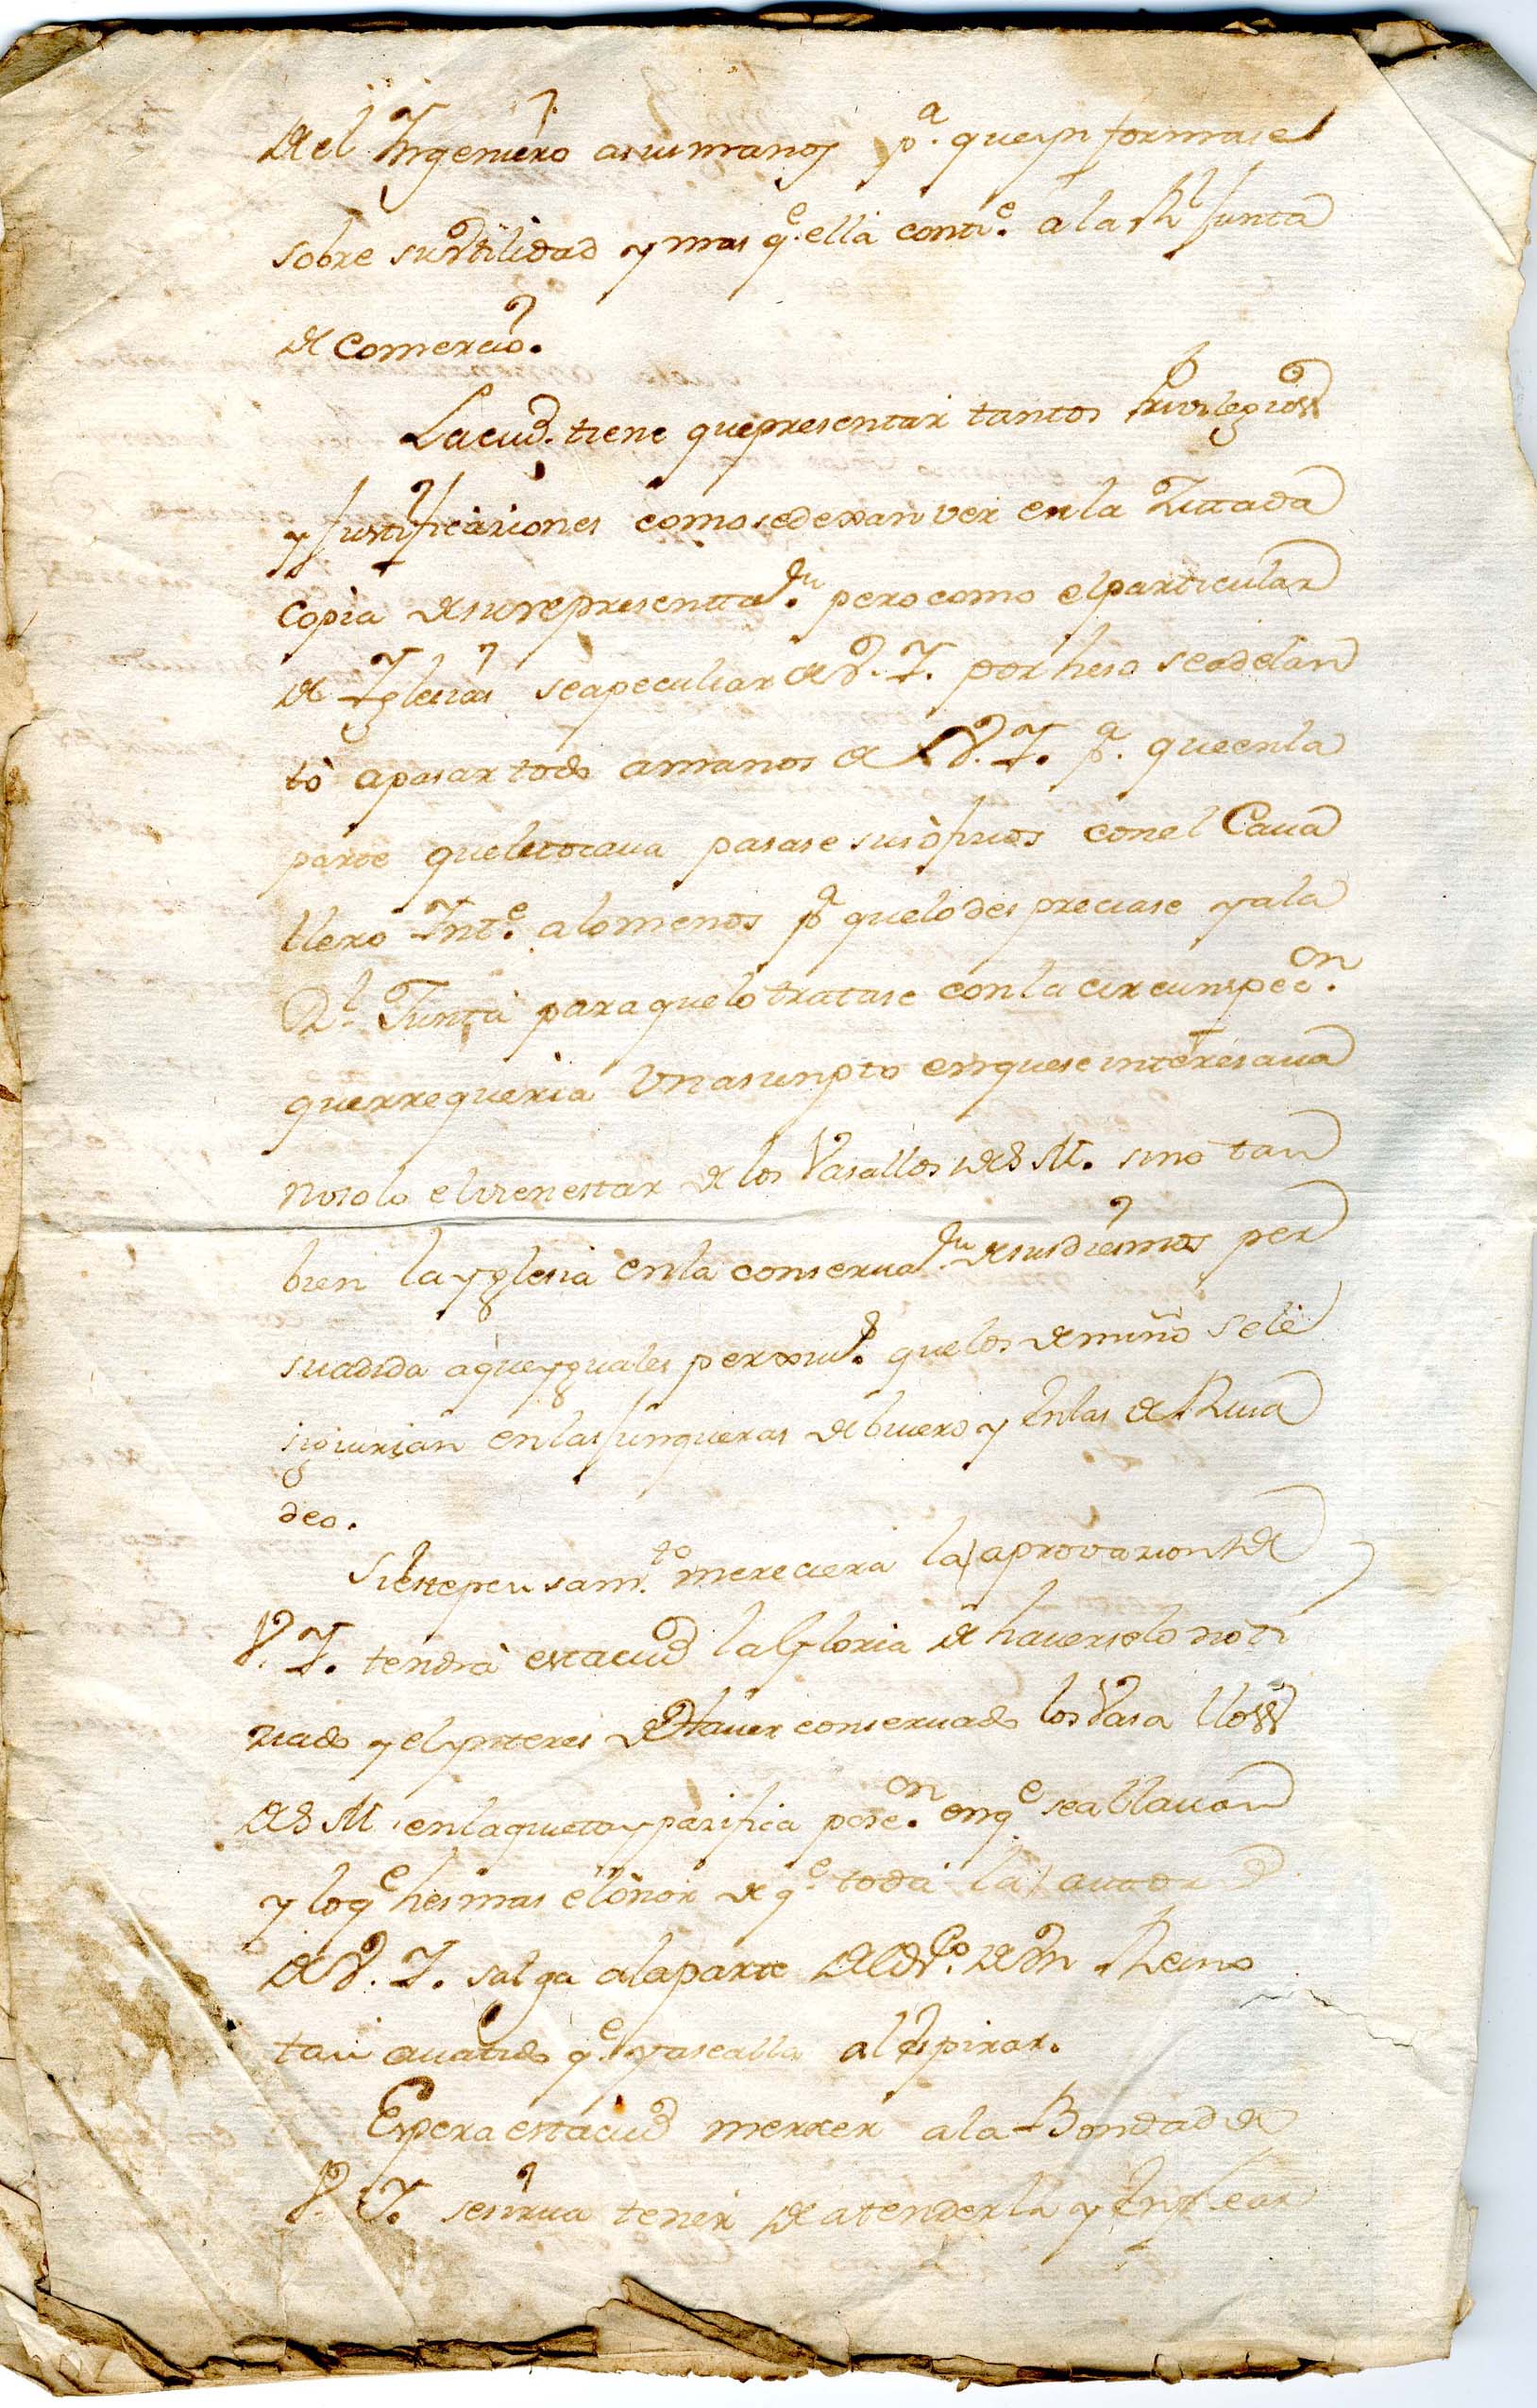 del Ingeniero asus manos pª. que ynformase
sobre su Vtilidad y mas qe. ella contie. ala Rl Junta
de Comercio.
La ciud. tiene que presentar tantos Privilegios
y Justificaziones como se dexan ver en la Zittada
Copia de su representtazn. pero como el particular
de Iglesias sea peculiar de V. I. por heso se adelan
tò a pasar todo amanos de V. I. pª. que en la
parte que le tocaua pasase sus òficios con el Caua
llero Inte. alomenos pª que lo despreciase y ala
Rl. Junta para que lo tratase con la circunspeccon.
que rrequeria Un asunpto en que se interesaua
no solo el vien estar de los Vasallos de S M. sino tan
bien la yglesia en la conseruazn. de sus diesmos per
suadida a que yguales perxui.s que los de miño se le
siguirian en las Junqueras de biuero y En las de Riua
deo.
Si este pensamto. mereciera la aprovazion de
V. I. tendrà esta ciud la Gloria de hauerselo noti
ziado y el ynteres de Hauer conseruado los Vasallos
de S M. en la quieta y pazifica poseon. en qe se allauan
y lo qe hes mas el ònor de qe. toda la
de V. I. salga ala parte del de Un Reino
tan auatido qe. ya se alla al espirar.
Espera esta ciud merezer ala Bondad de
V. I. se sirua tener de atenderla y Enplear